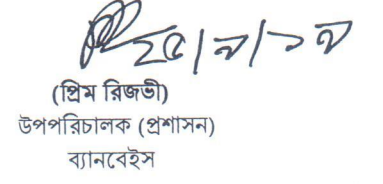 ২৫/৯/১৯
(প্রিম রিজভী)
উপপরিচালক (প্রশাসন)
ব্যানবেইস